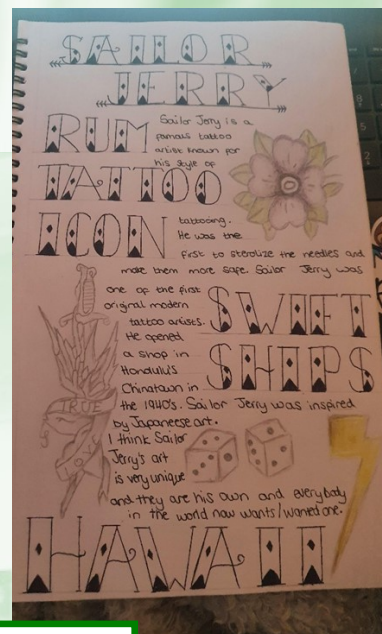 SAILOR
JERRY
RUM Sailor Jerry is a
famous tattoo
artist known for
his style of
TATTOO
ICON tattooing.
He was the
first to sterolize the needles and
make them more safe. Sailor Jerry was
one of the first
original modern
tattoo artists.
SWIFT
He opened
a shop in
Honolulu's
Chinatown in
SHIPS
the 1940's. Sailor Jerry was inspired
by Japaneese art.
I think Sailor
Jerry's art
is very unique
and they are his own and everybody
in the world now wants/wanted one.
TRUE
HAWAII